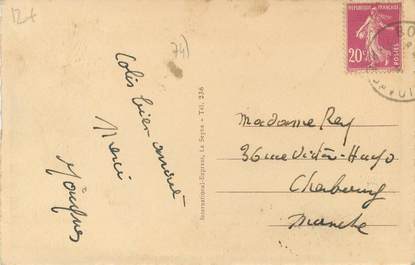 12+
74)
Colis bien arrivé
Merci
International-Express, La Seyne - Tél. 236
REPUBLIQUE FRANCAISE
20c
POSTES
BO
Madame Rey
36 rue Victor-Hugo
Cherbourg
Manche